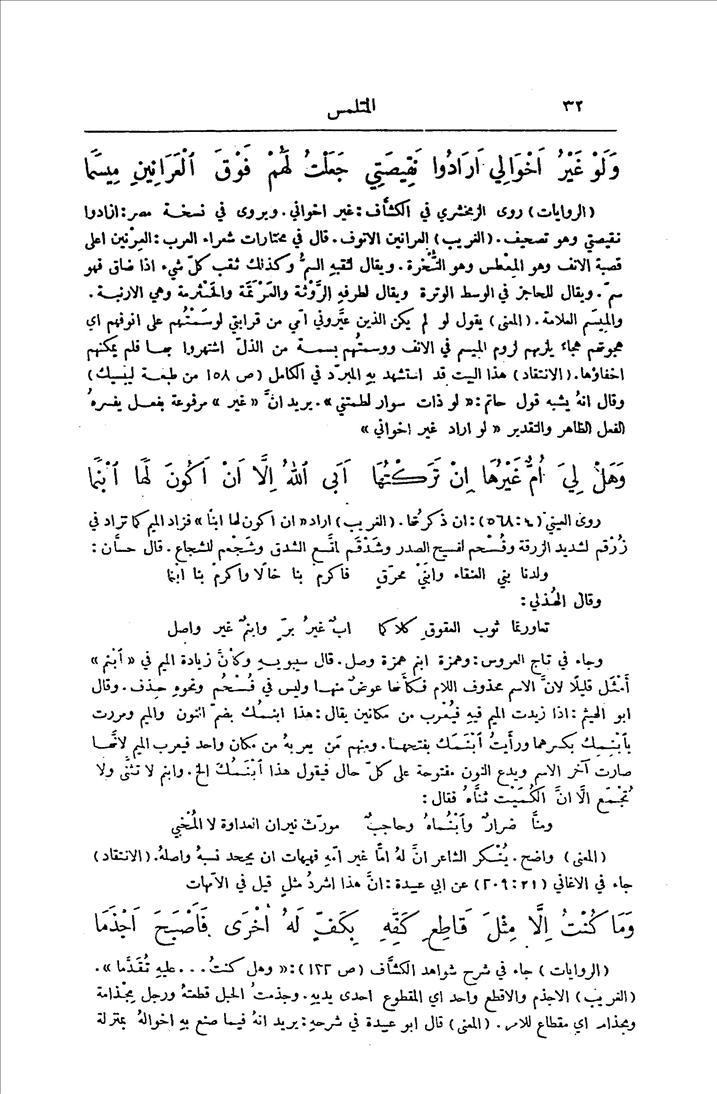 ٣٢ المتلمس
وَلَوْ غَيْرُ اَخْوَالِي اَرَادُوا نَقِيصَتِي جَعَلْتُ لَهُمْ فَوْقَ ٱلْعَرَانِينِ مِيسَمَا
(الروايات) روى الزمخشري في الكشَّاف: غير اخواني. ويروى في نسخة مصر: ازادوا
نقيصتي وهو تصحيف. (الغريب) العرانين الانوف. قال في مختارات شعراء العرب: العِرْنين اعلى
قصبة الانف وهو المِعْطس وهو النُّخرة. ويقال لثقبهِ السمُّ وكذلك ثقب كلّ شيء اذا ضاق فهو
سمّ. ويقال للحاجز في الوسط الوترة ويقال لطرفهِ الرَّوْثة والعَرْتَمَة والحَثْرمة وهي الارنبة.
والمِيسَم العلامة. (المعنى) يقول لو لم يكن الذين عيَّروني اُمي من قرابتي لوسَمْتُهم على انوفهم اي
هجوتهم هجاءً يلزمهم لزوم الميسم في الانف ووسمتُهم بسمة من الذلّ اشتهروا بها فلم يمكنهم
اخفاؤها. (الانتقاد) هذا البيت قد استشهد بهِ المبرّد في الكامل (ص ١٥٨ من طبعة ليبسيك)
وقال انهُ يشبه قول حاتم: « لو ذات سوار لطمتني ». يريد انَّ « غير » مرفوعة بفعل يفسرهُ
الفعل الظاهر والتقدير « لو اراد غير اخواني »
وَهَلْ لِيَ اُمٌّ غَيْرُهَا اِنْ تَرَكْتُهَا اَبَى ٱللهُ اِلَّا اَنْ اَكُونَ لَهَا ٱبْنَمَا
روى العيني (٤: ٥٦٨): ان ذكرتُها. (الغريب) اراد « ان اكون لها ابنًا » فزاد الميم كما تزاد في
زُرْقم لشديد الزرقة وفُسْحم لفسيح الصدر وشَدْقَم لمتَّسع الشدق وشَجْعم للشجاع. قال حسَّان:
ولدنا بني العنقاء وابنَيْ محرّقٍ فاكرمْ بنا خالًا واكرمْ بنا ابنما
وقال الهُذلي:
تعاورتما ثوب العقوقِ كلاكما ابٌ غيرُ برٍّ وابنمٌ غير واصل
وجاء في تاج العروس: وهمزة ابنم همزة وصل. قال سيبويهِ وكأنَّ زيادة الميم في « أبنم »
أَمْثَل قليلًا لانَّ الاسم محذوف اللام فكأنَّها عوضٌ منها وليس في فُسْحُم ونحوهِ حذف. وقال
ابو الهيثم: اذا زيدت الميم فيهِ فيُعْرب من مكانين يقال: هذا ابنمُكَ بضمّ النون والميم ومررت
بابْنِمِك بكسرهما ورأَيتُ ابْنَمَك بفتحهما. ومنهم مَن يعربهُ من مكان واحد فيعرب الميم لانَّها
صارت آخر الاسم ويدع النون مفتوحة على كلّ حال فيقول هذا ٱبْنَمُكَ الخ. وابنم لا تُثنَّى ولا
تُجْمَع الَّا انَّ الكُمَيْت ثنَّاهُ فقال:
ومنَّا ضرارٌ وٱبْنُماهُ وحاجبٌ مورّث نيران العداوة لا المُخْبي
(المعنى) واضح. يُنْكر الشاعر انَّ لهُ امًّا غير امّهِ فهيهات ان يجحد نسبهُ واصلهُ. (الانتقاد)
جاء في الاغاني (٢١: ٢٠٩) عن ابي عبيدة: انَّ هذا اشردُ مثلٍ قيل في الامَّهات
وَمَا كُنْتُ اِلَّا مِثْلَ قَاطِعِ كَفِّهِ بِكَفٍّ لَهُ اُخْرَى فَاَصْبَحَ اَجْذَمَا
(الروايات) جاء في شرح شواهد الكشَّاف (ص ١٢٢): « وهل كنتُ... عليهِ تُقدَّما ».
(الغريب) الاجذم والاقطع واحد اي المقطوع احدى يديهِ. وجذمتُ الحبل قطعتهُ ورجل مِجْذامة
ومجذام اي مقطاع للامر. (المعنى) قال ابو عبيدة في شرحهِ: يريد انهُ فيما صنع بهِ اخوالهُ بمنزلة